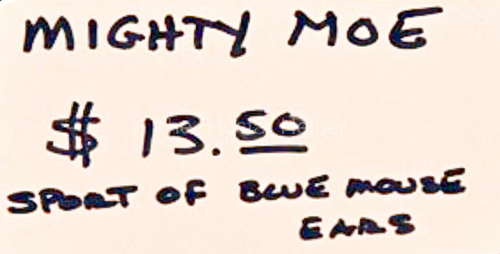 MIGHTY MOE
$ 13.50
SPORT OF BLUE MOUSE
EARS